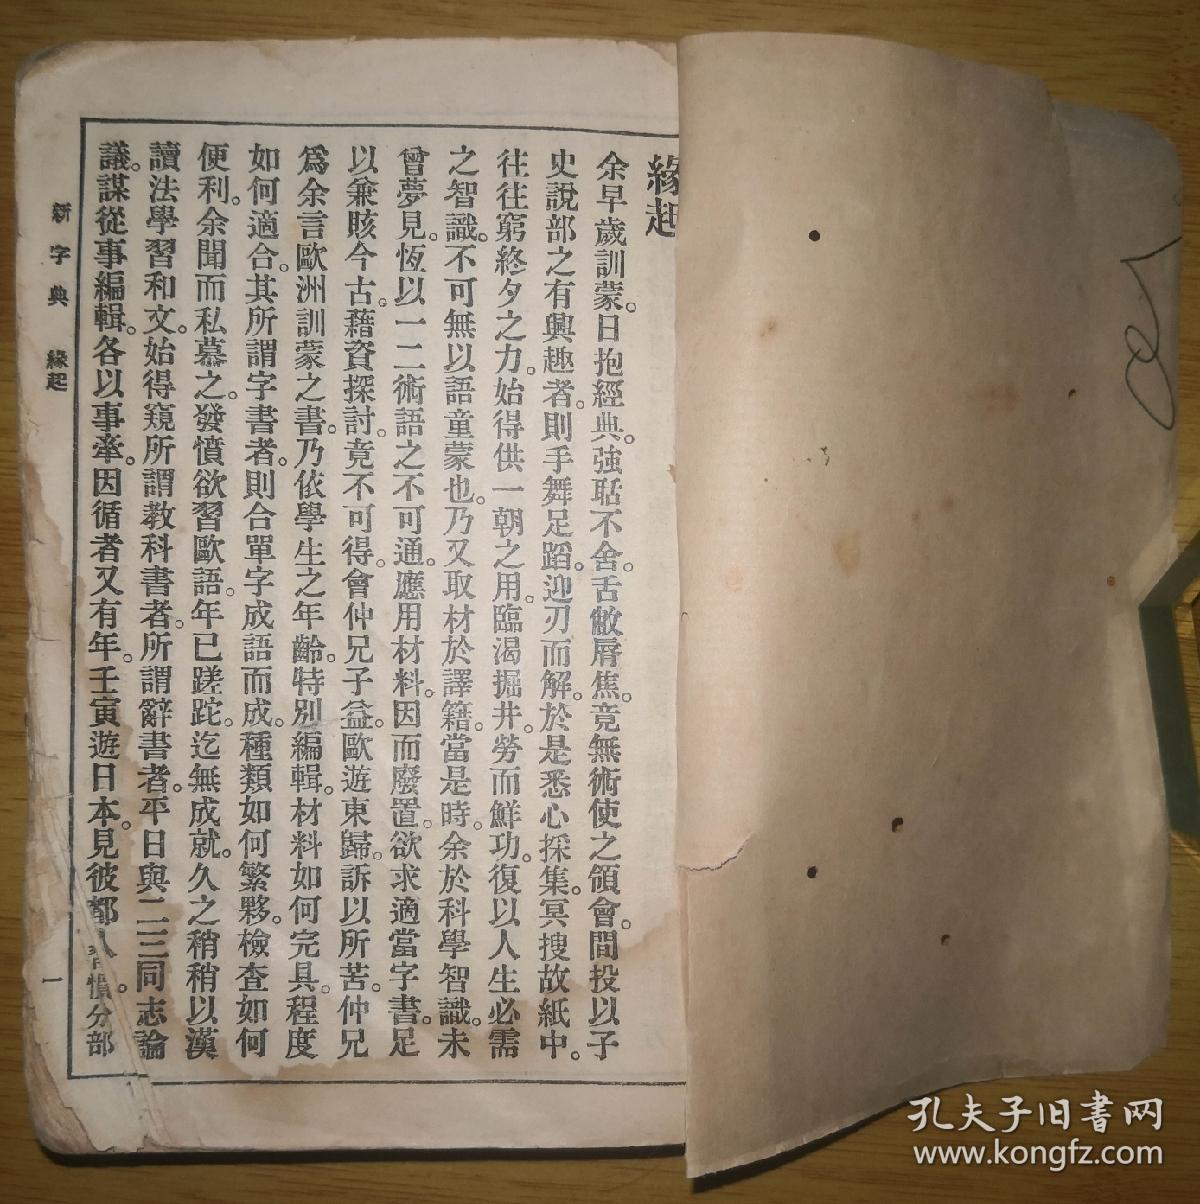 緣起
余早歲訓蒙。日抱經典。強聒不舍。舌敝脣焦。竟無術使之領會。間投以子
史說部之有興趣者。則手舞足蹈。迎刃而解。於是悉心採集。冥搜故紙中。
往往窮終夕之力。始得供一朝之用。臨渴掘井。勞而鮮功。復以人生必需
之智識。不可無以語童蒙也。乃又取材於譯籍。當是時。余於科學智識。未
曾夢見。恆以一二術語之不可通。應用材料。因而廢置。欲求適當字書。足
以兼賅今古。藉資探討。竟不可得。會仲兄子益。歐遊東歸。訴以所苦。仲兄
爲余言歐洲訓蒙之書。乃依學生之年齡。特別編輯。材料如何完具。程度
如何適合。其所謂字書者。則合單字成語而成。種類如何繁夥。檢查如何
便利。余聞而私慕之。發憤欲習歐語。年已蹉跎。迄無成就。久之稍稍以漢
讀法學習和文。始得窺所謂教科書者。所謂辭書者。平日與二三同志論
議。謀從事編輯。各以事牽。因循者又有年。壬寅遊日本。見彼都人習慣。分部
新字典 緣起 一
孔夫子旧书网
www.kongfz.com